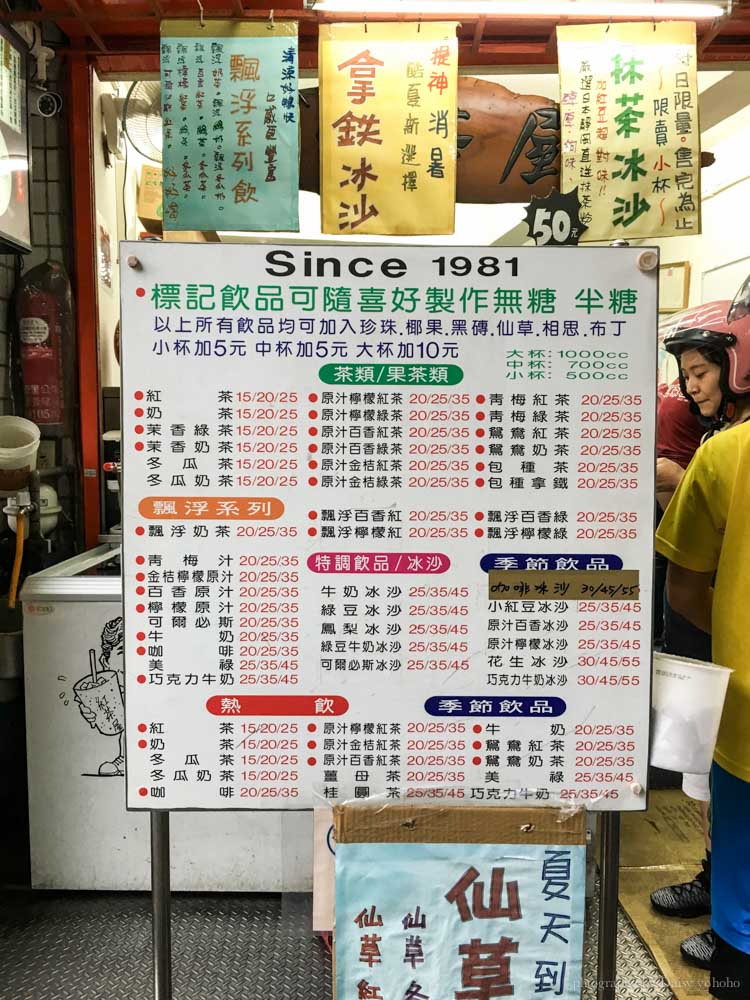 清涼好暢快
口感更豐富
飄浮系列飲
提神 消暑
酷夏新選擇
拿鉄冰沙
每日限量。售完為止
~限賣小杯~
抹茶冰沙
加紅豆超對味!!
50元
屋
Since 1981
•標記飲品可隨喜好製作無糖 半糖
以上所有飲品均可加入珍珠.椰果.黑磚.仙草.相思.布丁
小杯加5元 中杯加5元 大杯加10元
大杯:1000cc
中杯: 700cc
小杯: 500cc
茶類/果茶類
•紅茶15/20/25
•奶茶15/20/25
•茉香綠茶15/20/25
•茉香奶茶15/20/25
冬瓜茶15/20/25
冬瓜奶茶15/20/25
•原汁檸檬紅茶 20/25/35
•原汁檸檬綠茶 20/25/35
•原汁百香紅茶 20/25/35
•原汁百香綠茶 20/25/35
•原汁金桔紅茶 20/25/35
•原汁金桔綠茶 20/25/35
•青梅紅茶 20/25/35
•青梅綠茶 20/25/35
•鴛鴦紅茶 20/25/35
•鴛鴦奶茶 20/25/35
•包種茶 20/25/35
•包種拿鐵 20/25/35
飄浮系列
•飄浮奶茶 20/25/35
•飄浮百香紅 20/25/35
•飄浮檸檬紅 20/25/35
•飄浮百香綠 20/25/35
•飄浮檸檬綠 20/25/35
•青梅汁 20/25/35
•金桔檸檬原汁 20/25/35
•百香原汁 20/25/35
•檸檬原汁 20/25/35
可爾必斯 20/25/35
•牛奶 20/25/35
•咖啡 20/25/35
美祿 25/35/45
•巧克力牛奶 25/35/45
特調飲品/冰沙
牛奶冰沙 25/35/45
綠豆冰沙 25/35/45
鳳梨冰沙 25/35/45
綠豆牛奶冰沙 25/35/45
可爾必斯冰沙 25/35/45
季節飲品
咖啡冰沙 30/45/55
小紅豆冰沙 25/35/45
原汁百香冰沙 25/35/45
原汁檸檬冰沙 25/35/45
花生冰沙 30/45/55
巧克力牛奶冰沙 30/45/55
熱飲
•紅茶 15/20/25
•奶茶 15/20/25
冬瓜茶 15/20/25
冬瓜奶茶 15/20/25
•咖啡 20/25/35
•原汁檸檬紅茶 20/25/35
•原汁金桔紅茶 20/25/35
•原汁百香紅茶 20/25/35
薑母茶 20/25/35
桂圓茶 25/35/45
季節飲品
•牛奶 20/25/35
•鴛鴦紅茶 20/25/35
•鴛鴦奶茶 20/25/35
美祿 25/35/45
巧克力牛奶 25/35/45
夏天到
仙草
仙草冬
仙草紅